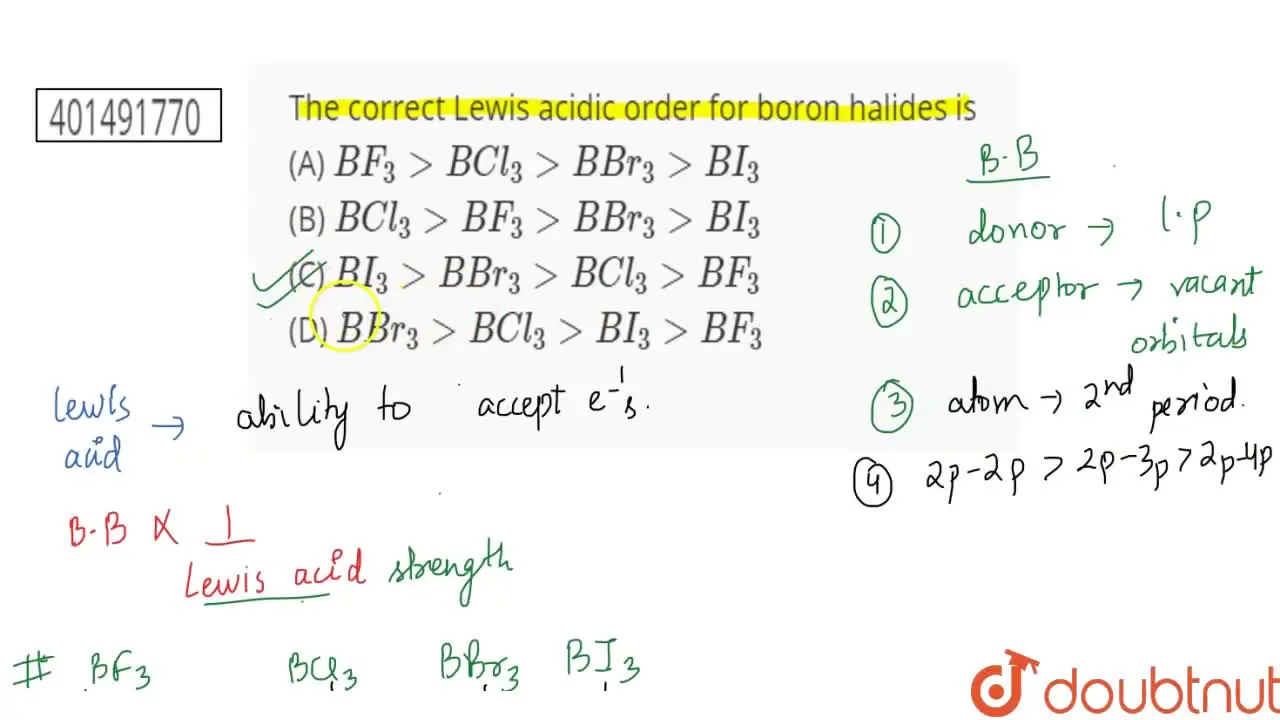 401491770
The correct Lewis acidic order for boron halides is
(A) BF₃ > BCl₃ > BBr₃ > BI₃
(B) BCl₃ > BF₃ > BBr₃ > BI₃
(C) BI₃ > BBr₃ > BCl₃ > BF₃
(D) BBr₃ > BCl₃ > BI₃ > BF₃
B·B
① donor → l·p
② acceptor → vacant
orbitals
③ atom → 2nd period.
④ 2p-2p > 2p-3p > 2p-4p
lewis
acid → ability to accept e⁻'s.
B·B ∝ 1
Lewis acid strength
# BF₃ BCl₃ BBr₃ BI₃
doubtnut